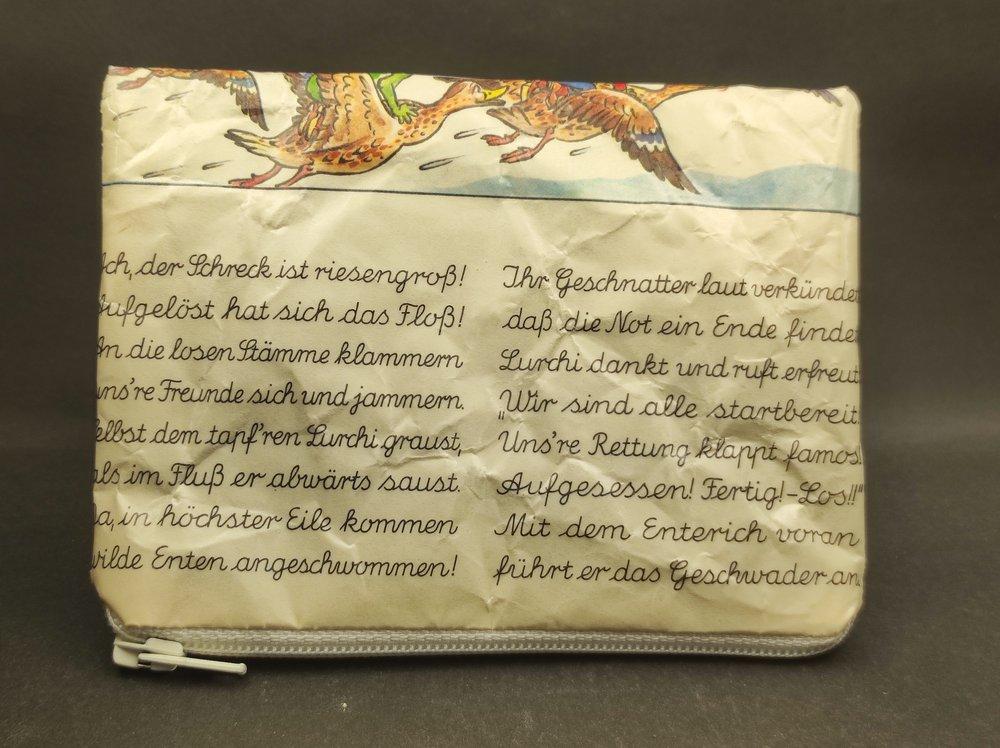 Ach, der Schreck ist riesengroß!
Aufgelöst hat sich das Floß!
An die losen Stämme klammern
uns're Freunde sich und jammern.
Selbst dem tapf'ren Lurchi graust,
als im Fluß er abwärts saust.
Da, in höchster Eile kommen
wilde Enten angeschwommen!
Ihr Geschnatter laut verkündet
daß die Not ein Ende findet
Lurchi dankt und ruft erfreut
„Wir sind alle startbereit
Uns're Rettung klappt famos!
Aufgesessen! Fertig!-Los!!"
Mit dem Enterich voran
führt er das Geschwader an.